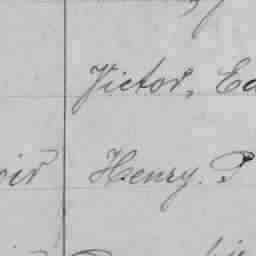 Victor, Ed
oir Henry. P